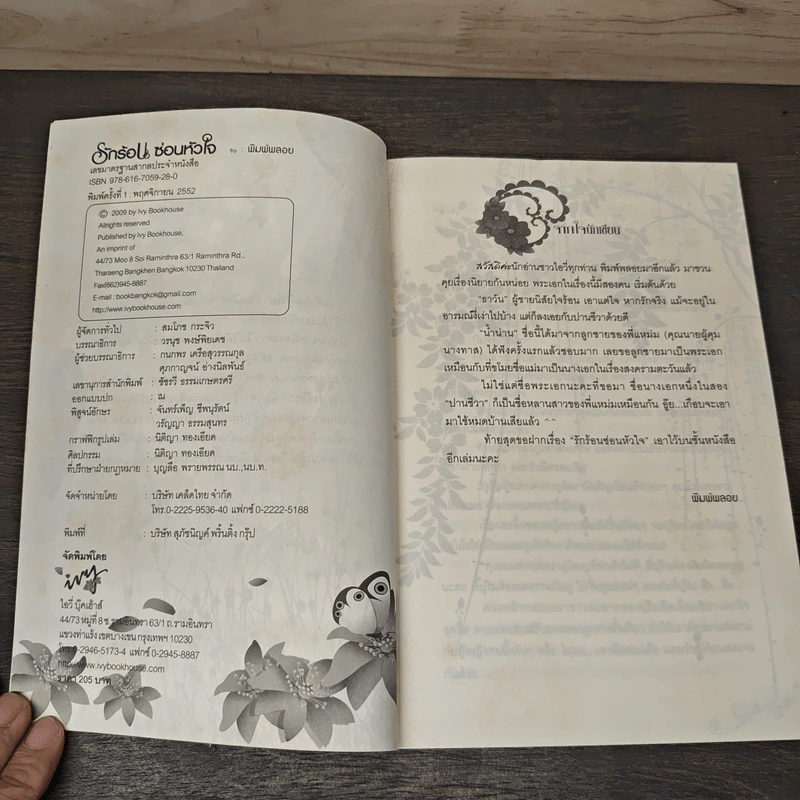 รักร้อน ซ่อนหัวใจ by : พิมพ์พลอย
เลขมาตรฐานสากลประจำหนังสือ
ISBN 978-616-7059-28-0
พิมพ์ครั้งที่ 1 : พฤศจิกายน 2552
© 2009 by Ivy Bookhouse
Allrights reserved
Published by Ivy Bookhouse,
An imprint of
44/73 Moo 8 Soi Raminthra 63/1 Raminthra Rd.,
Tharaeng Bangkhen Bangkok 10230 Thailand
Fax(662)945-8887
E-mail : bookbangkok@gmail.com
http://www.ivybookhouse.com
ผู้จัดการทั่วไป : สมโภช กระจิว
บรรณาธิการ : วรนุช พงษ์พิยเดช
ผู้ช่วยบรรณาธิการ : กนกพร เครือสุวรรณกุล
ศุภกาญจน์ อ่างนิลพันธ์
เลขานุการสำนักพิมพ์ : ชัชรวี ธรรมเกษตรศรี
ออกแบบปก : ณ
พิสูจน์อักษร : จันทร์เพ็ญ ชีพนุรัตน์
วรัญญา ธรรมสุนทร
กราฟฟิกรูปเล่ม : นิติญา ทองเอียด
ศิลปกรรม : นิติญา ทองเอียด
ที่ปรึกษาฝ่ายกฎหมาย : บุญลือ พรายพรรณ นบ.,นบ.ท.
จัดจำหน่ายโดย : บริษัท เคล็ดไทย จำกัด
โทร.0-2225-9536-40 แฟกซ์ 0-2222-5188
พิมพ์ที่ : บริษัท สุภัชนิญค์ พริ้นติ้ง กรุ๊ป
จัดพิมพ์โดย
ivy
ไอวี่ บุ๊คเฮ้าส์
44/73 หมู่ที่ 8 ซ.รามอินทรา 63/1 ถ.รามอินทรา
แขวงท่าแร้ง เขตบางเขน กรุงเทพฯ 10230
โทร.0-2946-5173-4 แฟกซ์ 0-2945-8887
http://www.ivybookhouse.com
ราคา 205 บาท
จากใจนักเขียน
สวัสดีค่ะนักอ่านชาวไอวี่ทุกท่าน พิมพ์พลอยมาอีกแล้ว มาชวน
คุยเรื่องนิยายกันหน่อย พระเอกในเรื่องนี้มีสองคน เริ่มต้นด้วย
"ธาวัน" ผู้ชายนิสัยใจร้อน เอาแต่ใจ หากรักจริง แม้จะอยู่ใน
อารมณ์งี่เง่าไปบ้าง แต่ก็ลงเอยกับปานชีวาด้วยดี
"น้ำน่าน" ชื่อนี้ได้มาจากลูกชายของพี่แหม่ม (คุณนายผู้คุม
นางทาส) ได้ฟังครั้งแรกแล้วชอบมาก เลยขอลูกชายมาเป็นพระเอก
เหมือนกับที่ขโมยชื่อแม่มาเป็นนางเอกในเรื่องสงครามตะวันแล้ว
ไม่ใช่แต่ชื่อพระเอกนะคะที่ขอมา ชื่อนางเอกหนึ่งในสอง
"ปานชีวา" ก็เป็นชื่อหลานสาวของพี่แหม่มเหมือนกัน อุ๊ย...เกือบจะเอา
มาใช้หมดบ้านเสียแล้ว ^^
ท้ายสุดขอฝากเรื่อง "รักร้อนซ่อนหัวใจ" เอาไว้บนชั้นหนังสือ
อีกเล่มนะคะ
พิมพ์พลอย